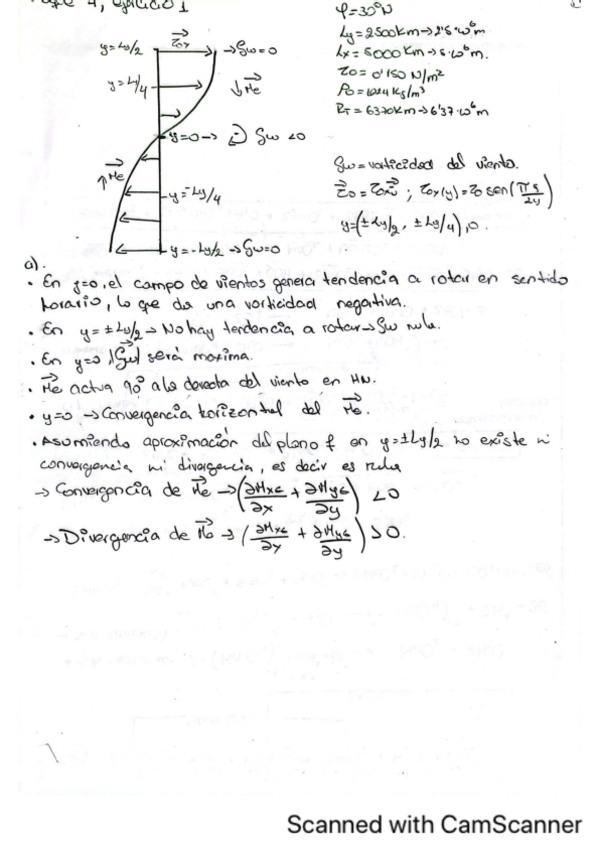 φ=30°N
Ly=2500km→2'5·10⁶m
Lx=5000km→5·10⁶m.
τ0=0'150 N/m²
ρ0=1024kg/m³
RT=6370km→6'37·10⁶m
y=Ly/2
τox
→ζw=0
y=Ly/4
↓Me
y=0→ ζw<0
↑Me
y=-Ly/4
y=-Ly/2→ζw=0
ζw=vorticidad del viento.
τ0=τ0x ; τ0x(y)=τ0 sen(πy/Ly)
y=(±Ly/2, ±Ly/4),0.
a).
• En y=0, el campo de vientos genera tendencia a rotar en sentido
horario, lo que da una vorticidad negativa.
• En y=±Ly/2→ No hay tendencia a rotar→ζw nula.
• En y=0 |ζw| será maxima.
• Me actua 90° a la derecha del viento en HN.
• y=0 →Convergencia horizontal del Me.
• Asumiendo aproximación del plano f en y=±Ly/2 no existe ni
convergencia ni divergencia, es decir es nula
→ Convergencia de Me →(∂Mxe/∂x + ∂Mye/∂y) <0
→Divergencia de Me → (∂Mxe/∂x + ∂Mye/∂y) >0.
Scanned with CamScanner